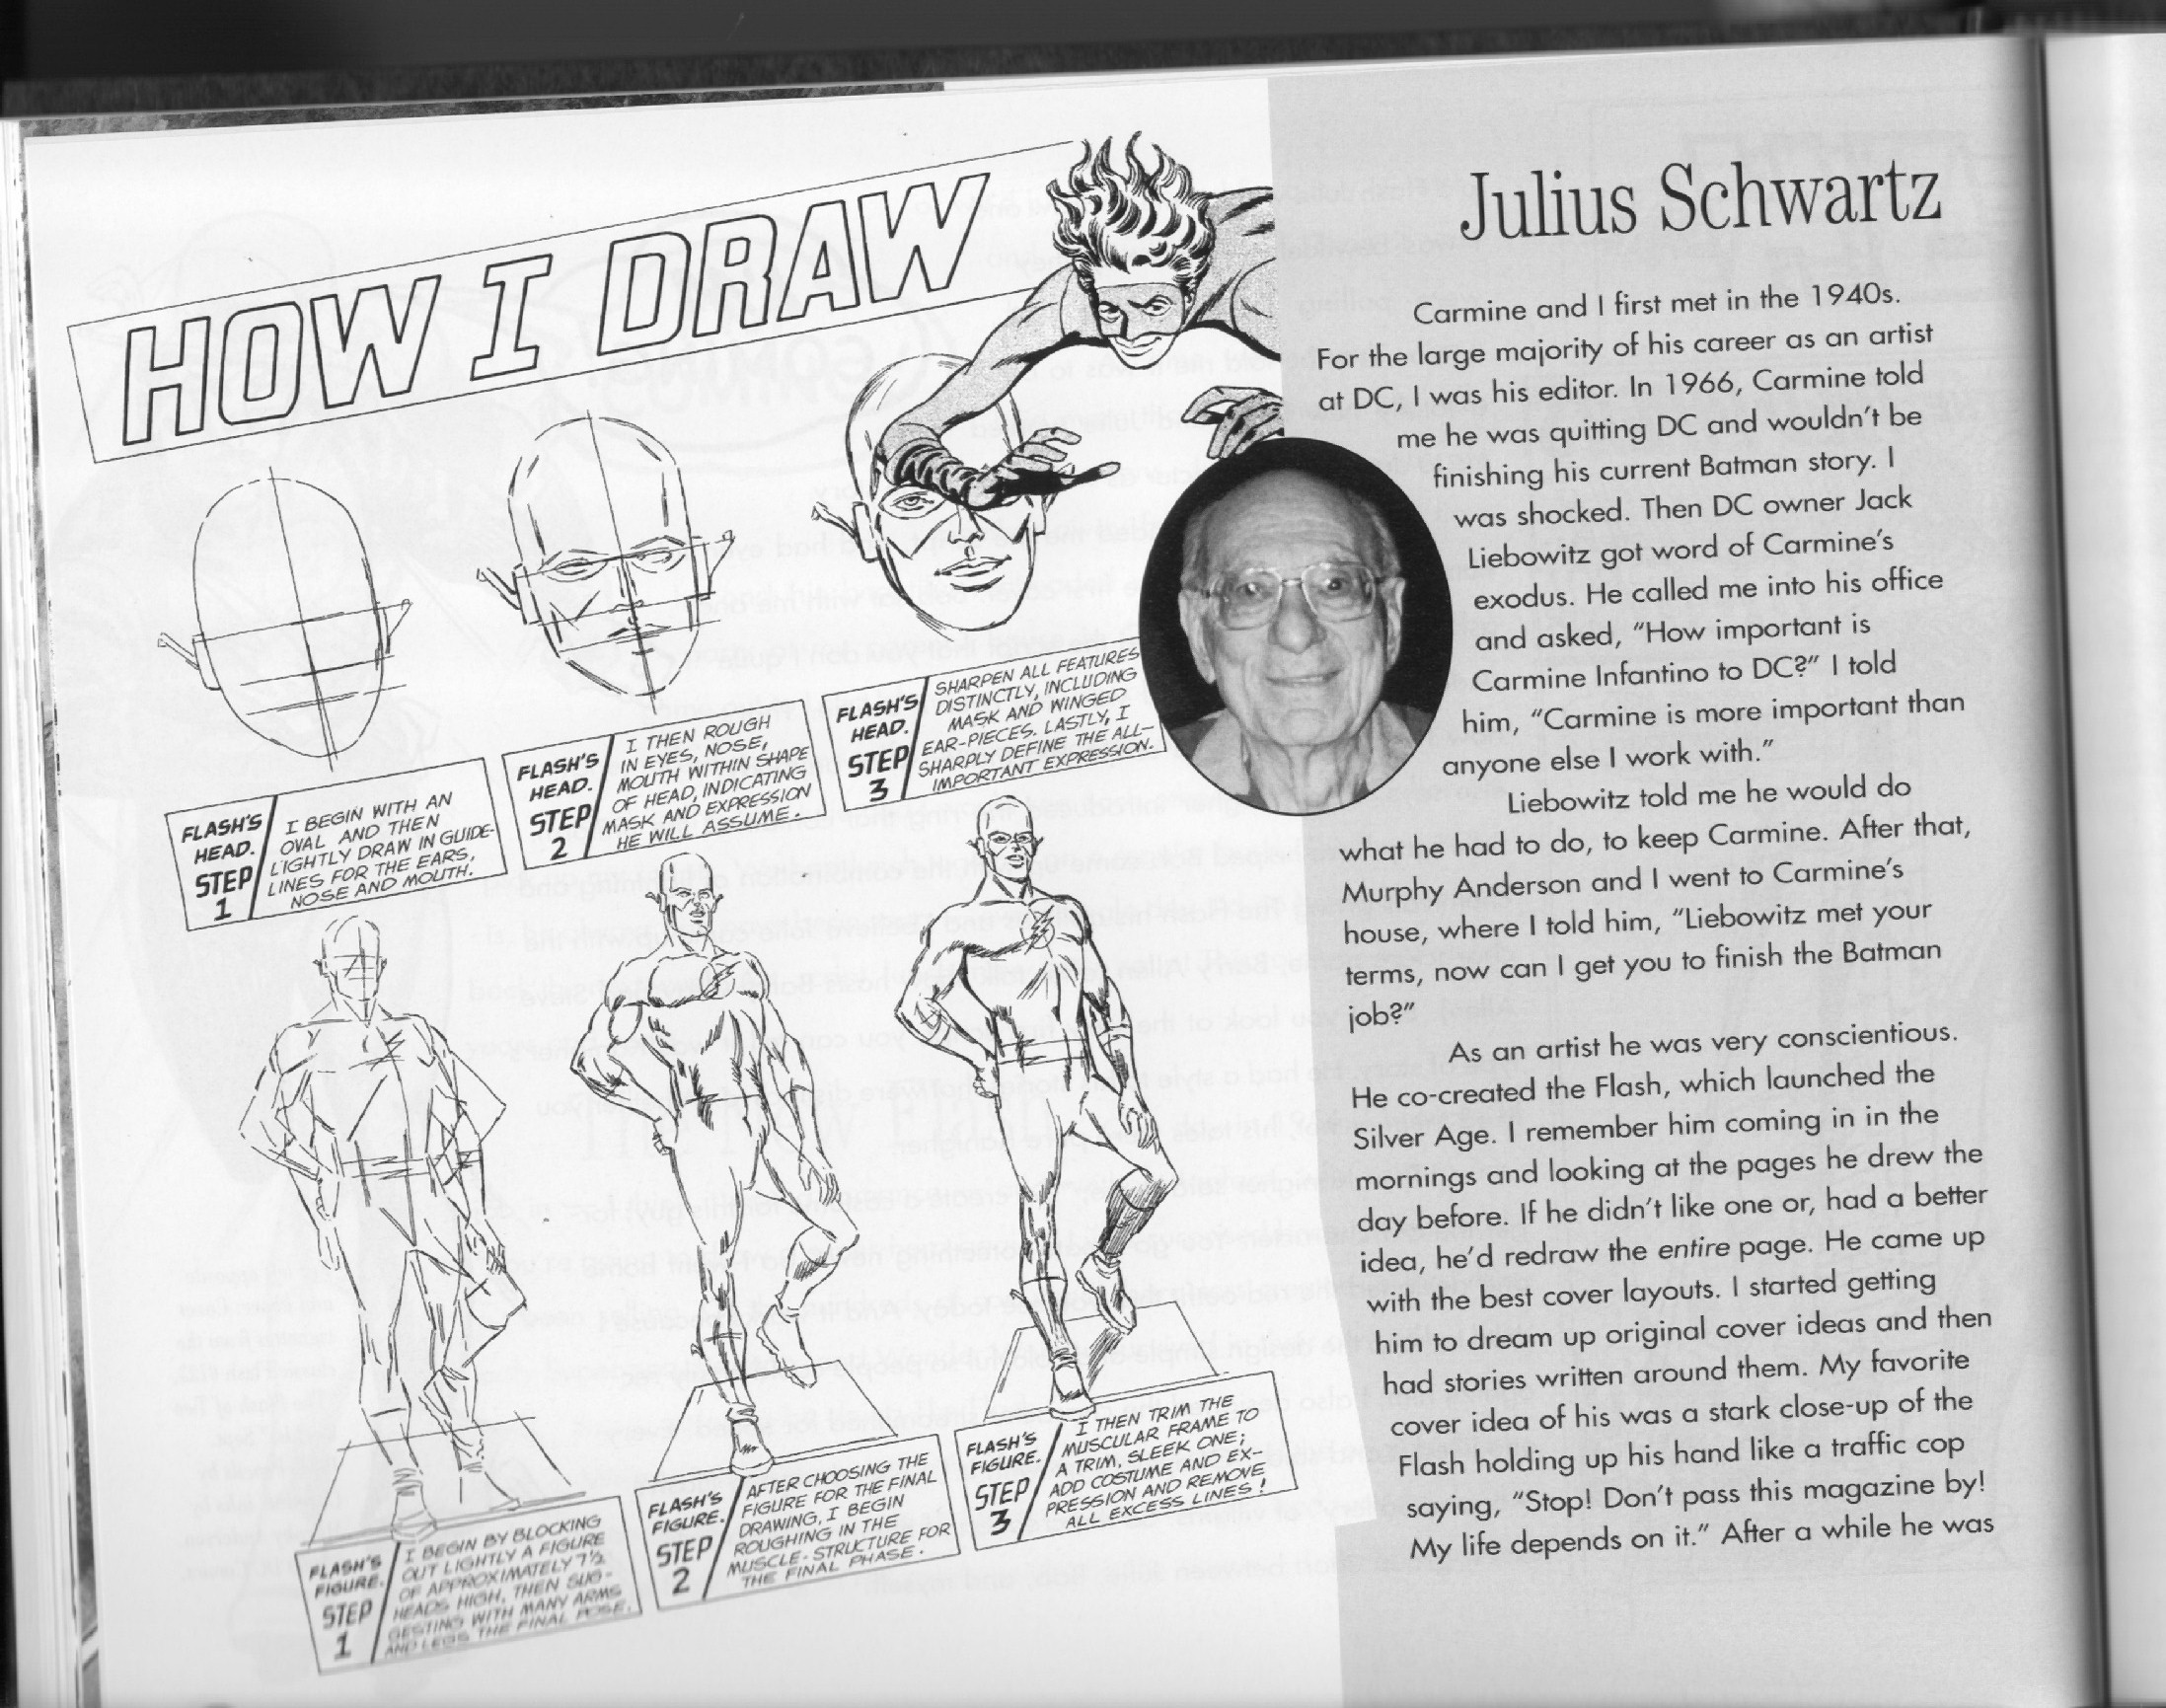 HOW I DRAW
FLASH'S
HEAD.
STEP
1
I BEGIN WITH AN
OVAL AND THEN
LIGHTLY DRAW IN GUIDE-
LINES FOR THE EARS,
NOSE AND MOUTH.
FLASH'S
HEAD.
STEP
2
I THEN ROUGH
IN EYES, NOSE,
MOUTH WITHIN SHAPE
OF HEAD, INDICATING
MASK AND EXPRESSION
HE WILL ASSUME.
FLASH'S
HEAD.
STEP
3
SHARPEN ALL FEATURES
DISTINCTLY, INCLUDING
MASK AND WINGED
EAR-PIECES. LASTLY, I
SHARPLY DEFINE THE ALL-
IMPORTANT EXPRESSION.
FLASH'S
FIGURE.
STEP
1
I BEGIN BY BLOCKING
OUT LIGHTLY A FIGURE
OF APPROXIMATELY 7½
HEADS HIGH, THEN SUG-
GESTING WITH MANY ARMS
AND LEGS THE FINAL POSE.
FLASH'S
FIGURE.
STEP
2
AFTER CHOOSING THE
FIGURE FOR THE FINAL
DRAWING, I BEGIN
ROUGHING IN THE
MUSCLE-STRUCTURE FOR
THE FINAL PHASE.
FLASH'S
FIGURE.
STEP
3
I THEN TRIM THE
MUSCULAR FRAME TO
A TRIM, SLEEK ONE;
ADD COSTUME AND EX-
PRESSION AND REMOVE
ALL EXCESS LINES!
Julius Schwartz
Carmine and I first met in the 1940s.
For the large majority of his career as an artist
at DC, I was his editor. In 1966, Carmine told
me he was quitting DC and wouldn't be
finishing his current Batman story. I
was shocked. Then DC owner Jack
Liebowitz got word of Carmine's
exodus. He called me into his office
and asked, "How important is
Carmine Infantino to DC?" I told
him, "Carmine is more important than
anyone else I work with."
Liebowitz told me he would do
what he had to do, to keep Carmine. After that,
Murphy Anderson and I went to Carmine's
house, where I told him, "Liebowitz met your
terms, now can I get you to finish the Batman
job?"
As an artist he was very conscientious.
He co-created the Flash, which launched the
Silver Age. I remember him coming in in the
mornings and looking at the pages he drew the
day before. If he didn't like one or, had a better
idea, he'd redraw the entire page. He came up
with the best cover layouts. I started getting
him to dream up original cover ideas and then
had stories written around them. My favorite
cover idea of his was a stark close-up of the
Flash holding up his hand like a traffic cop
saying, "Stop! Don't pass this magazine by!
My life depends on it." After a while he was